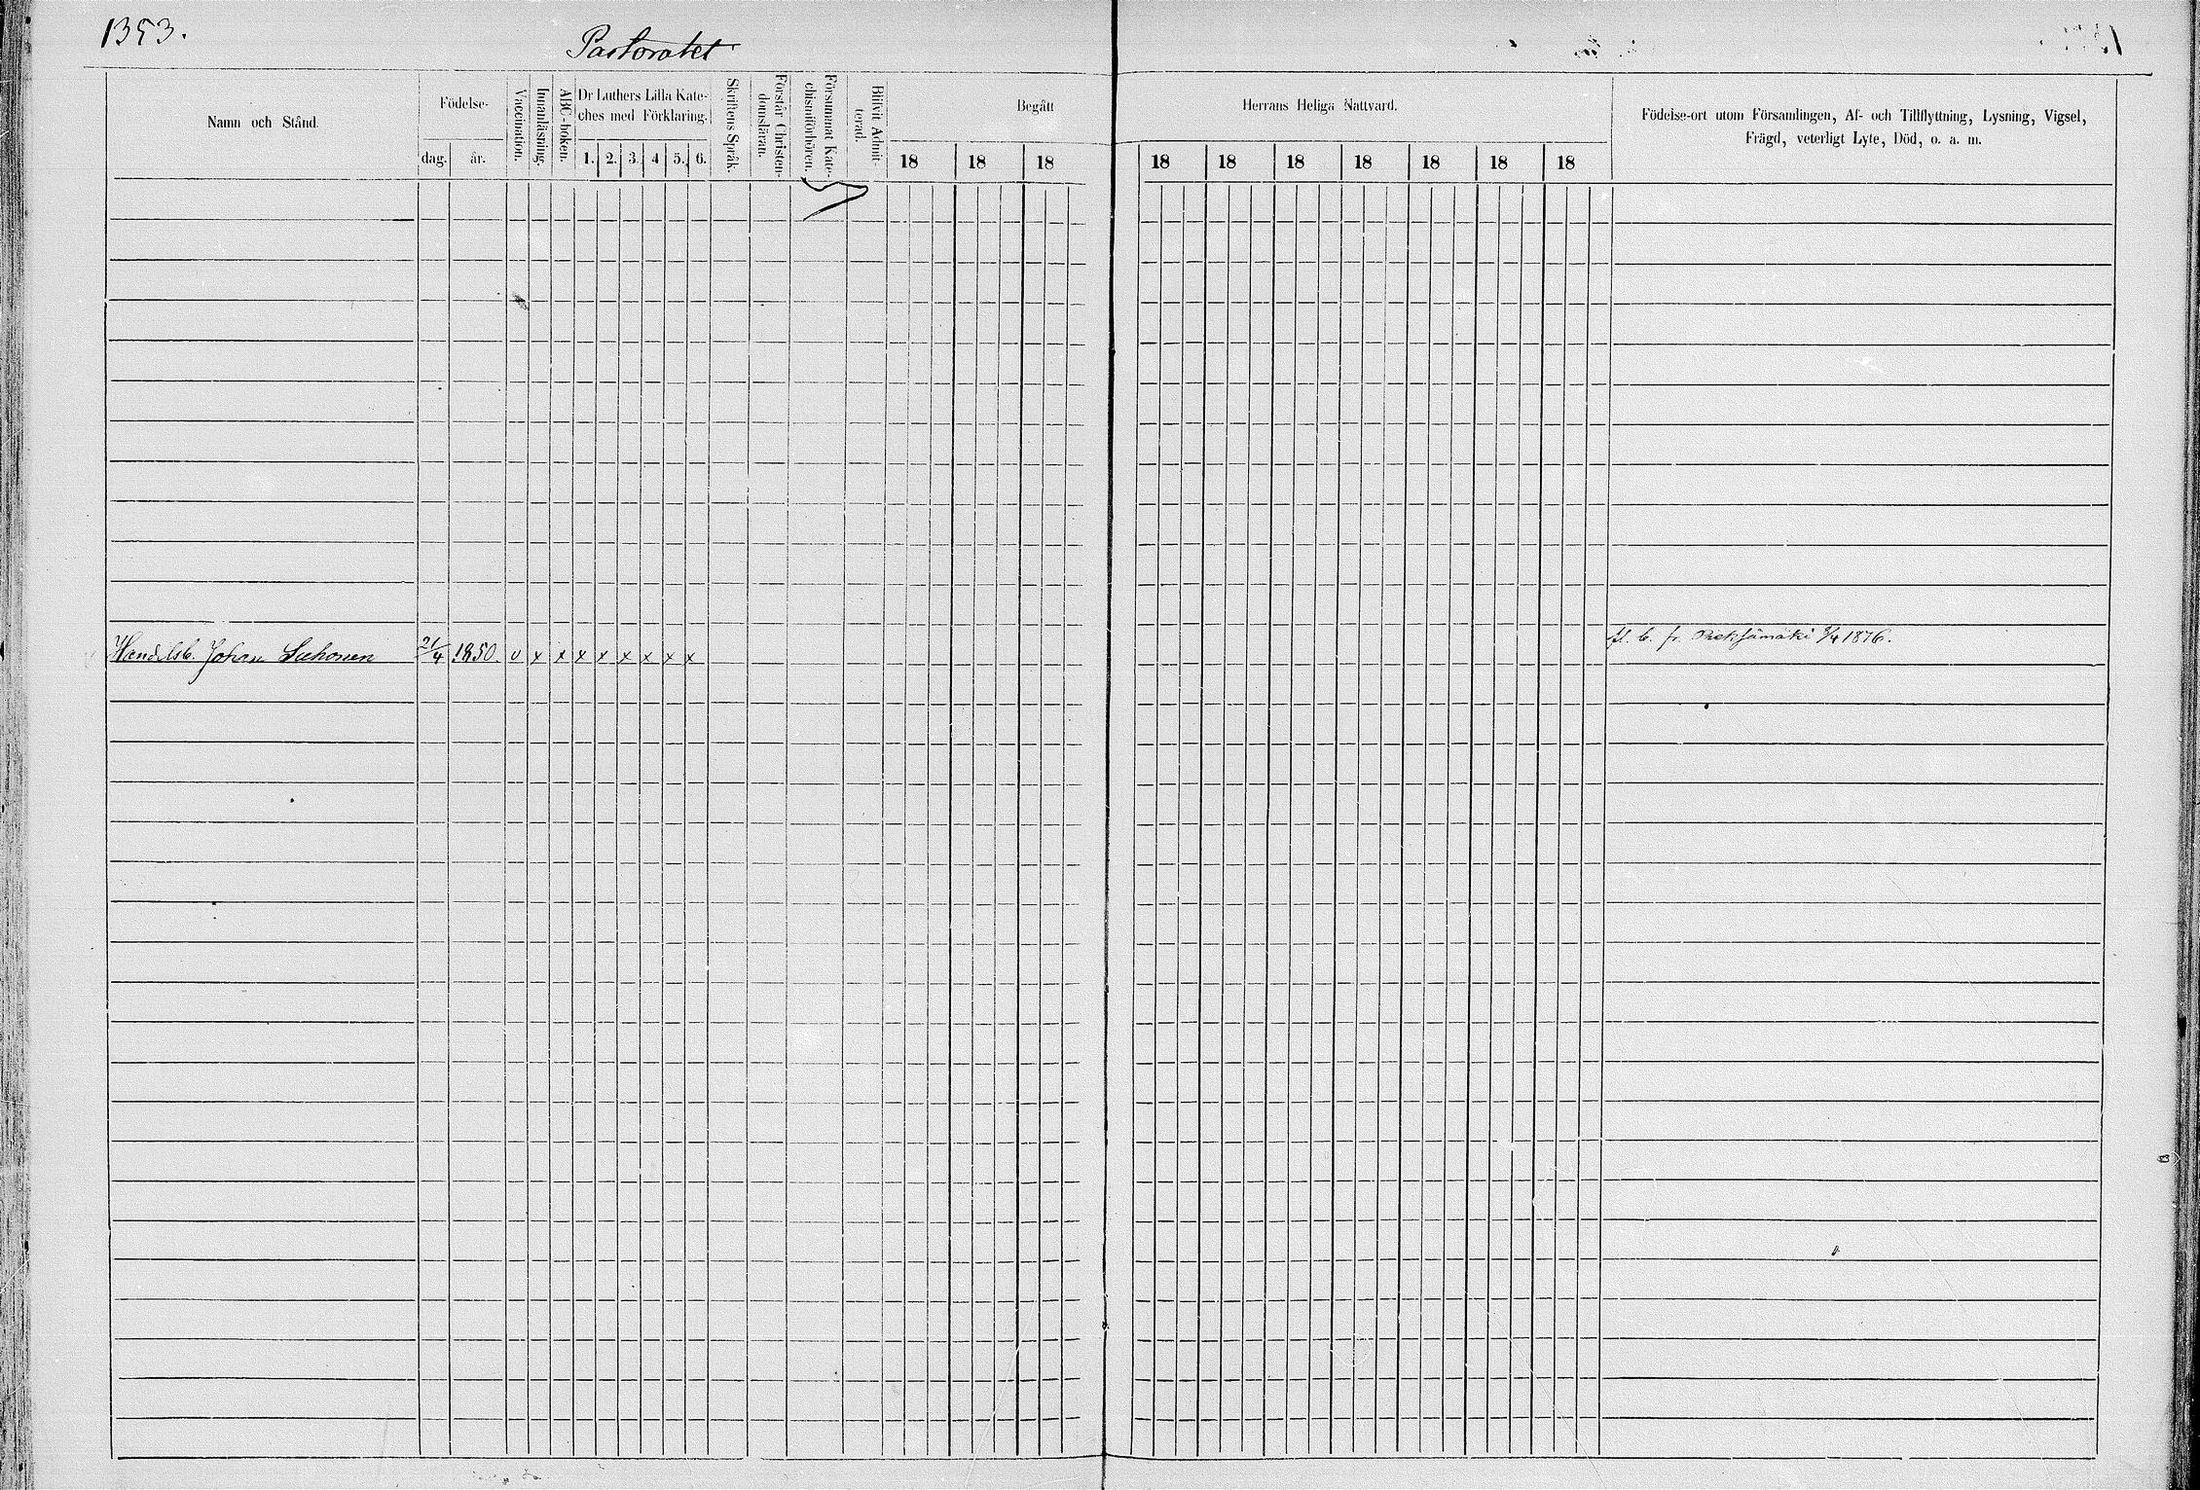 1353.
Pastoratet
Namn och Stånd.
Födelse-
dag. år.
Vaccination.
Innanläsning.
ABC-boken.
Dr Luthers Lilla Kate-
ches med Förklaring.
1. 2. 3. 4 5. 6.
Skriftens Språk.
Förstår Christen-
domsläran.
Försummat Kate-
chismiförhören.
Blifvit Admit-
terad.
Begått
18 18 18
Herrans Heliga Nattvard.
18 18 18 18 18 18 18
Födelse-ort utom Församlingen, Af- och Tillflyttning, Lysning, Vigsel,
Frägd, veterligt Lyte, Död, o. a. m.
Handelsb. Johan 21/4 1850. v x x x x x x x x
fr. Pieksämäki 1876.